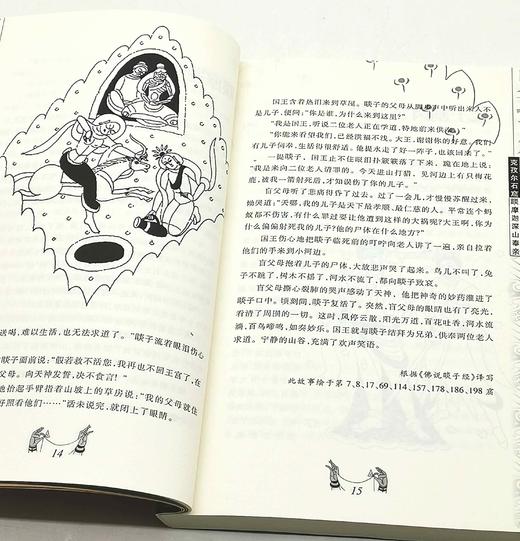 送喝，难以生活，也无法求道了。”睒子流着眼泪伤心
睒子面前说：“般若救不活您，我再也不回王宫了，在
命。向天神发誓，决不食言！”
地抬起手臂指着山坡上的草房说：“我的父母就住
好照看他们……”话未说完，就闭上了眼睛。
14
国王含着热泪来到草屋。睒子的父母从脚步声中听出来人不
是儿子，便问：“你是谁，为什么来到这里？”
“我是国王，听说二位老人正在学道，特地前来供
“你能来看望我们，已经洪福不浅。大王，谢谢你的好意。我们有
儿子伺奉，生活得很舒适。他提水走了好一阵子，也该回来了。”
一提睒子，国王止不住眼泪扑簌簌落了下来，跪在地上说：
“我是来向二位老人请罪的。今天进山打猎，见河边上有只梅花
鹿，被我一箭射死后，才知误伤了你的儿子。”
盲父母听了悲痛得昏了过去。过了一会儿，才慢慢苏醒过来，
恸哭道：“天哪，我的儿子是天下最孝顺、最仁慈的人。平常连个蚂
蚁都不伤害，有什么罪过要让他遭到这样的大祸呢？大王啊，你为
什么偏偏射死我的儿子？他的尸体在什么地方？”
国王伤心地把睒子临死前的叮咛向老人讲了一遍，亲自拉着
他们的手来到小河边。
盲父母抱着儿子的尸体，大放悲声哭了起来。鸟儿不叫了，兔
子不跳了，树木不摇了，河水不流了，都向睒子致哀。
盲父母撕心裂肺的哭声感动了天神，他把神奇的妙药灌进了
睒子口中。顷刻间，睒子复活了。突然，盲父母的眼睛也有了亮光，
看清了周围的一切。这时，风停云散，阳光万道，百花吐香，河水流
淌，百鸟啼鸣，如奏妙乐。国王就与睒子结拜为兄弟，供奉两位老人
求道。宁静的山谷，充满了欢声笑语。
根据《佛说睒子经》译写
此故事绘于第7、8、17、69、114、157、178、186、198窟
15
克孜尔石窟睒摩迦深山奉亲